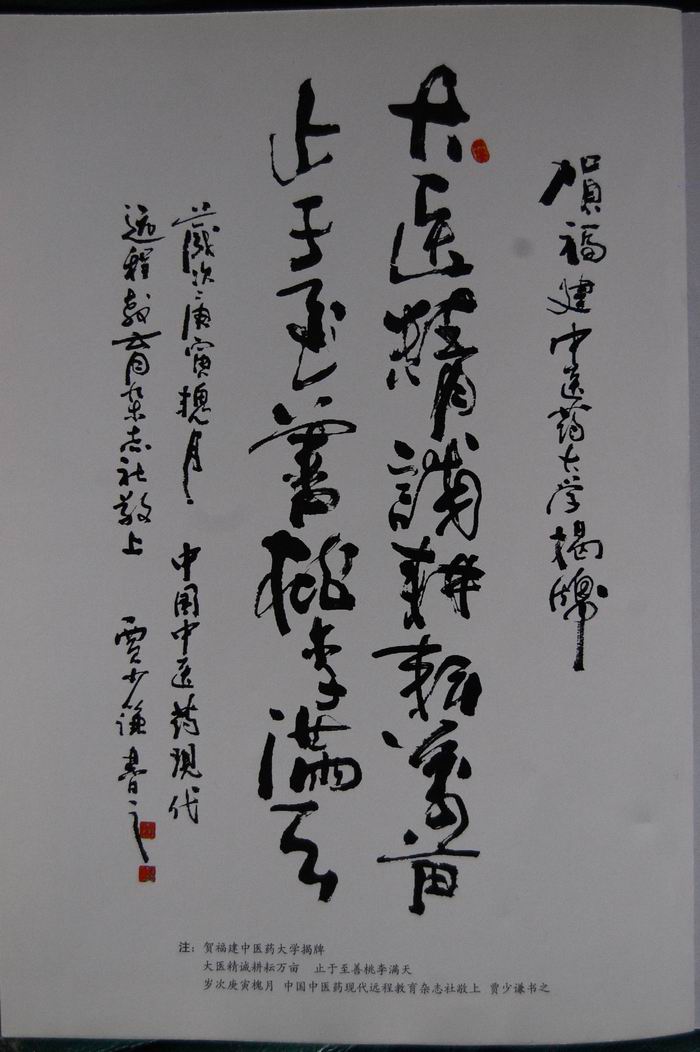 賀福建中医药大学揭牌
大医精诚耕耘萬亩
止于至善桃李满天
歲次庚寅槐月 中国中医药現代
远程教育杂志社敬上 贾少谦書之
注：贺福建中医药大学揭牌
大医精诚耕耘万亩 止于至善桃李满天
岁次庚寅槐月 中国中医药现代远程教育杂志社敬上 贾少谦书之